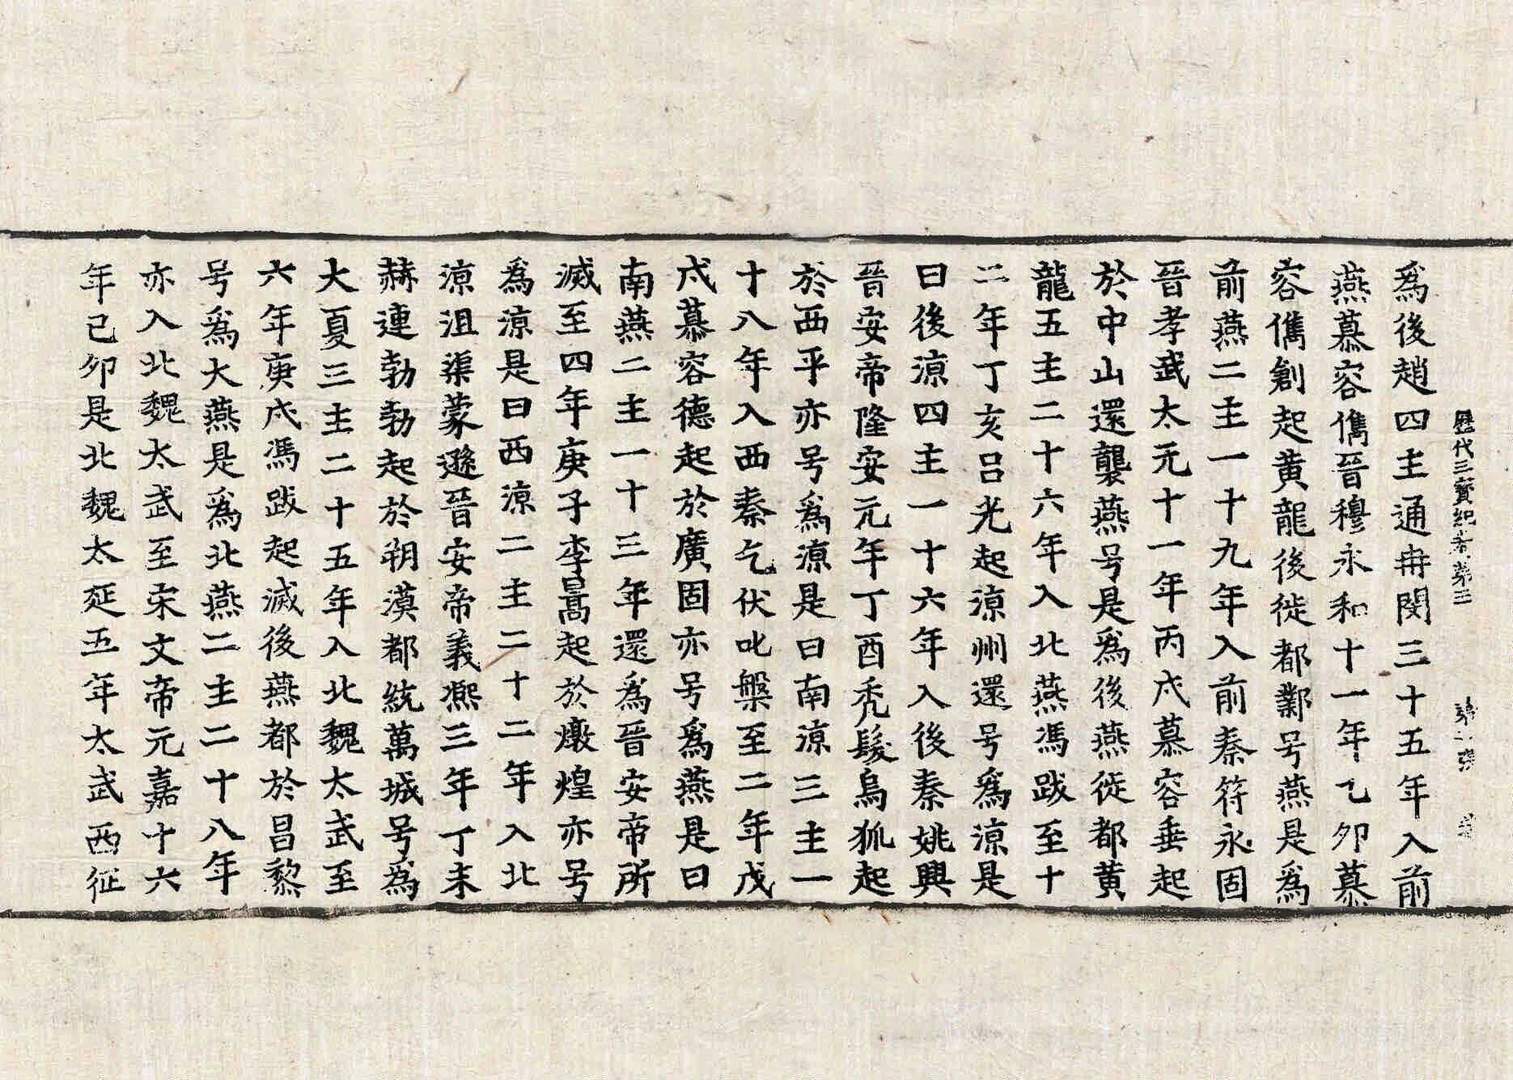 歷代三寶紀卷第三
為後趙四主通冉閔三十五年入前
燕慕容儁晉穆永和十一年乙卯慕
容儁創起黃龍後徙都鄴号燕是為
前燕二主一十九年入前秦符永固
晉孝武太元十一年丙戌慕容垂起
於中山還襲燕号是為後燕徙都黃
龍五主二十六年入北燕馮跋至十
二年丁亥呂光起涼州還号為涼是
曰後涼四主一十六年入後秦姚興
晉安帝隆安元年丁酉禿髮烏狐起
於西平亦号為涼是曰南涼三主一
十八年入西秦乞伏叱槃至二年戊
戌慕容德起於廣固亦号為燕是曰
南燕二主一十三年還為晉安帝所
滅至四年庚子李暠起於燉煌亦号
為涼是曰西涼二主二十二年入北
涼沮渠蒙遜晉安帝義熙三年丁未
赫連勃勃起於朔漠都統萬城号為
大夏三主二十五年入北魏太武至
六年庚戌馮跋起滅後燕都於昌黎
号為大燕是為北燕二主二十八年
亦入北魏太武至宋文帝元嘉十六
年己卯是北魏太延五年太武西征